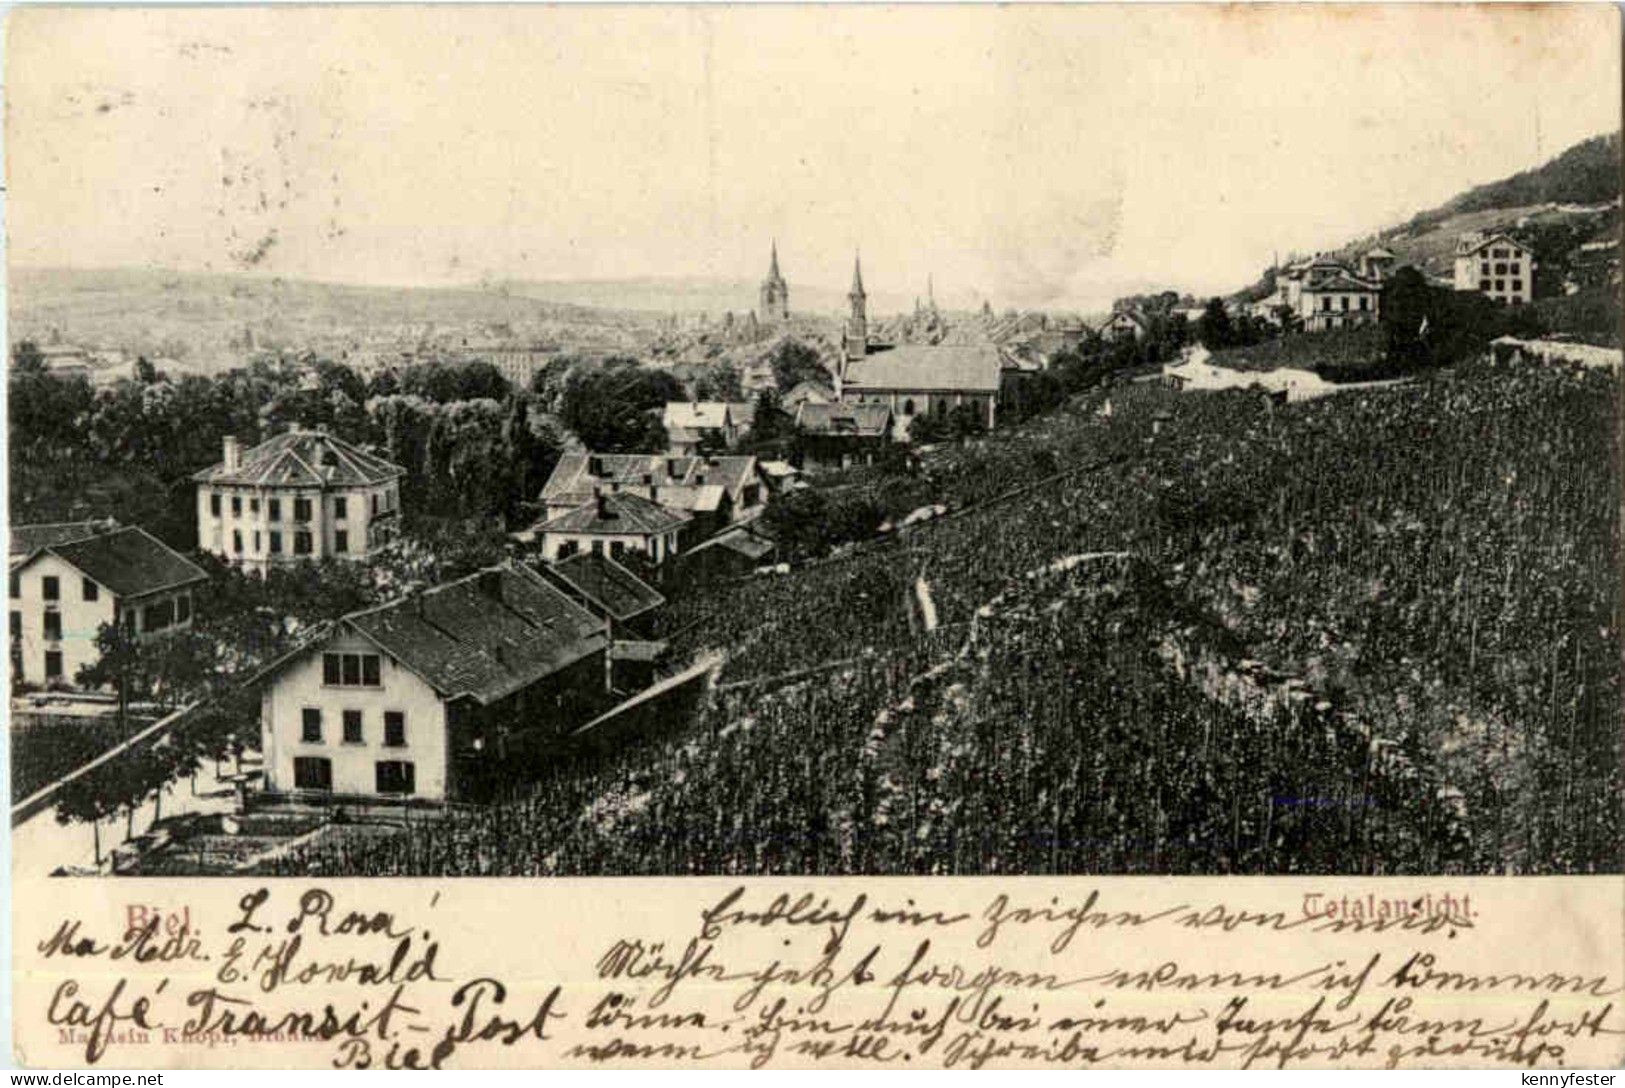 Biel.
Totalansicht.
L. Rosa!
Ma Adr.
E. Howald
Café Transit-Post
Biel
Magasin Knopf, Bienne
Endlich ein Zeichen von mir.
Möchte jetzt fragen wenn ich kommen
könne. Bin auch bei einer Tante kann fort
wenn ich will. Schreibe mir sofort zurück.
delcampe.net
kennyfester